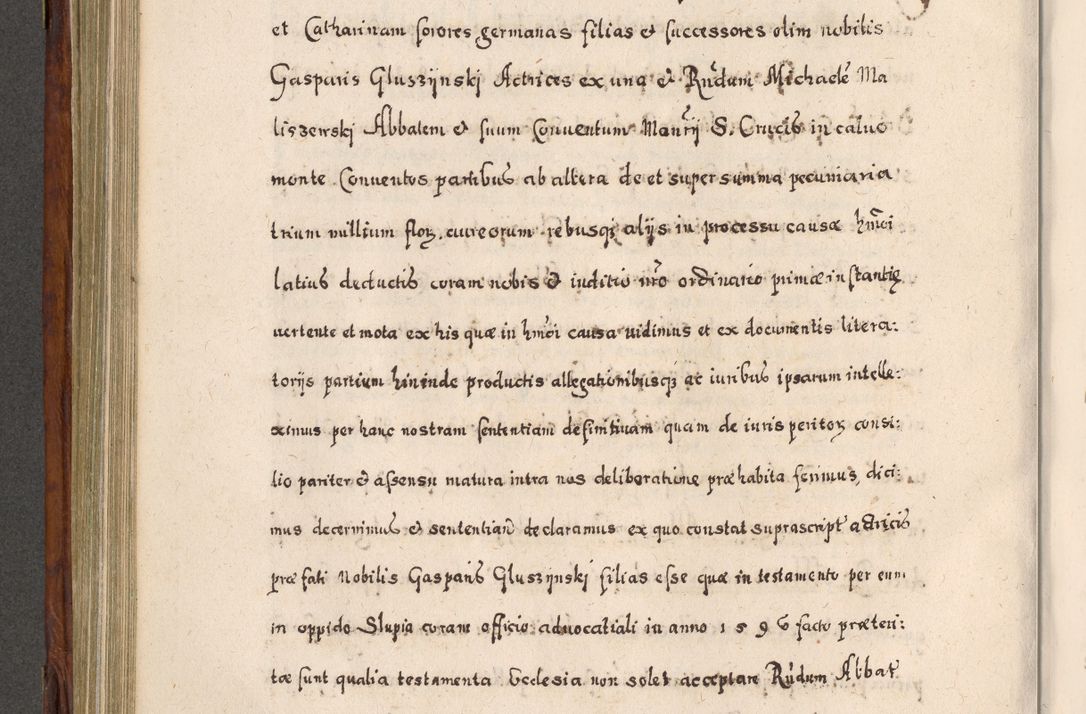 et Catharinam sorores germanas filias et successores olim nobilis
Gasparis Gluszijnskj Actrices ex una et Rndum Michaelē Ma
liszewskj Abbatem et suum Conuentum Manrij S. Crucis in caluo
monte Conuentos partibus ab altera de et super summa pecuniaria
trium millium flor. aureorum rebusqȝ alijs in processu causæ hmōi
latius deductis coram nobis et iuditio nrō ordinario primæ instantię
uertente et mota ex his quæ in hmōi causa uidimus et ex documentis litera:
torijs partium hininde productis allegationibusqȝ ac iuribus ipsarum intelle:
ximus per hanc nostram sententiam definitiuam quam de iuris peritoꝝ consi:
lio pariter et assensu matura intra nos deliberatione præhabita ferimus, dici:
mus decernimus et sententiam declaramus ex quo constat suprascript actricis
præfati Nobilis Gasparis Gluszijnskj filias esse quæ in testamento per eum
in oppido Slupia coram officio aduocatiali in anno 1596 facto præteri:
tæ sunt qualia testamenta Ecclesia non solet acceptare Rndum Abbat